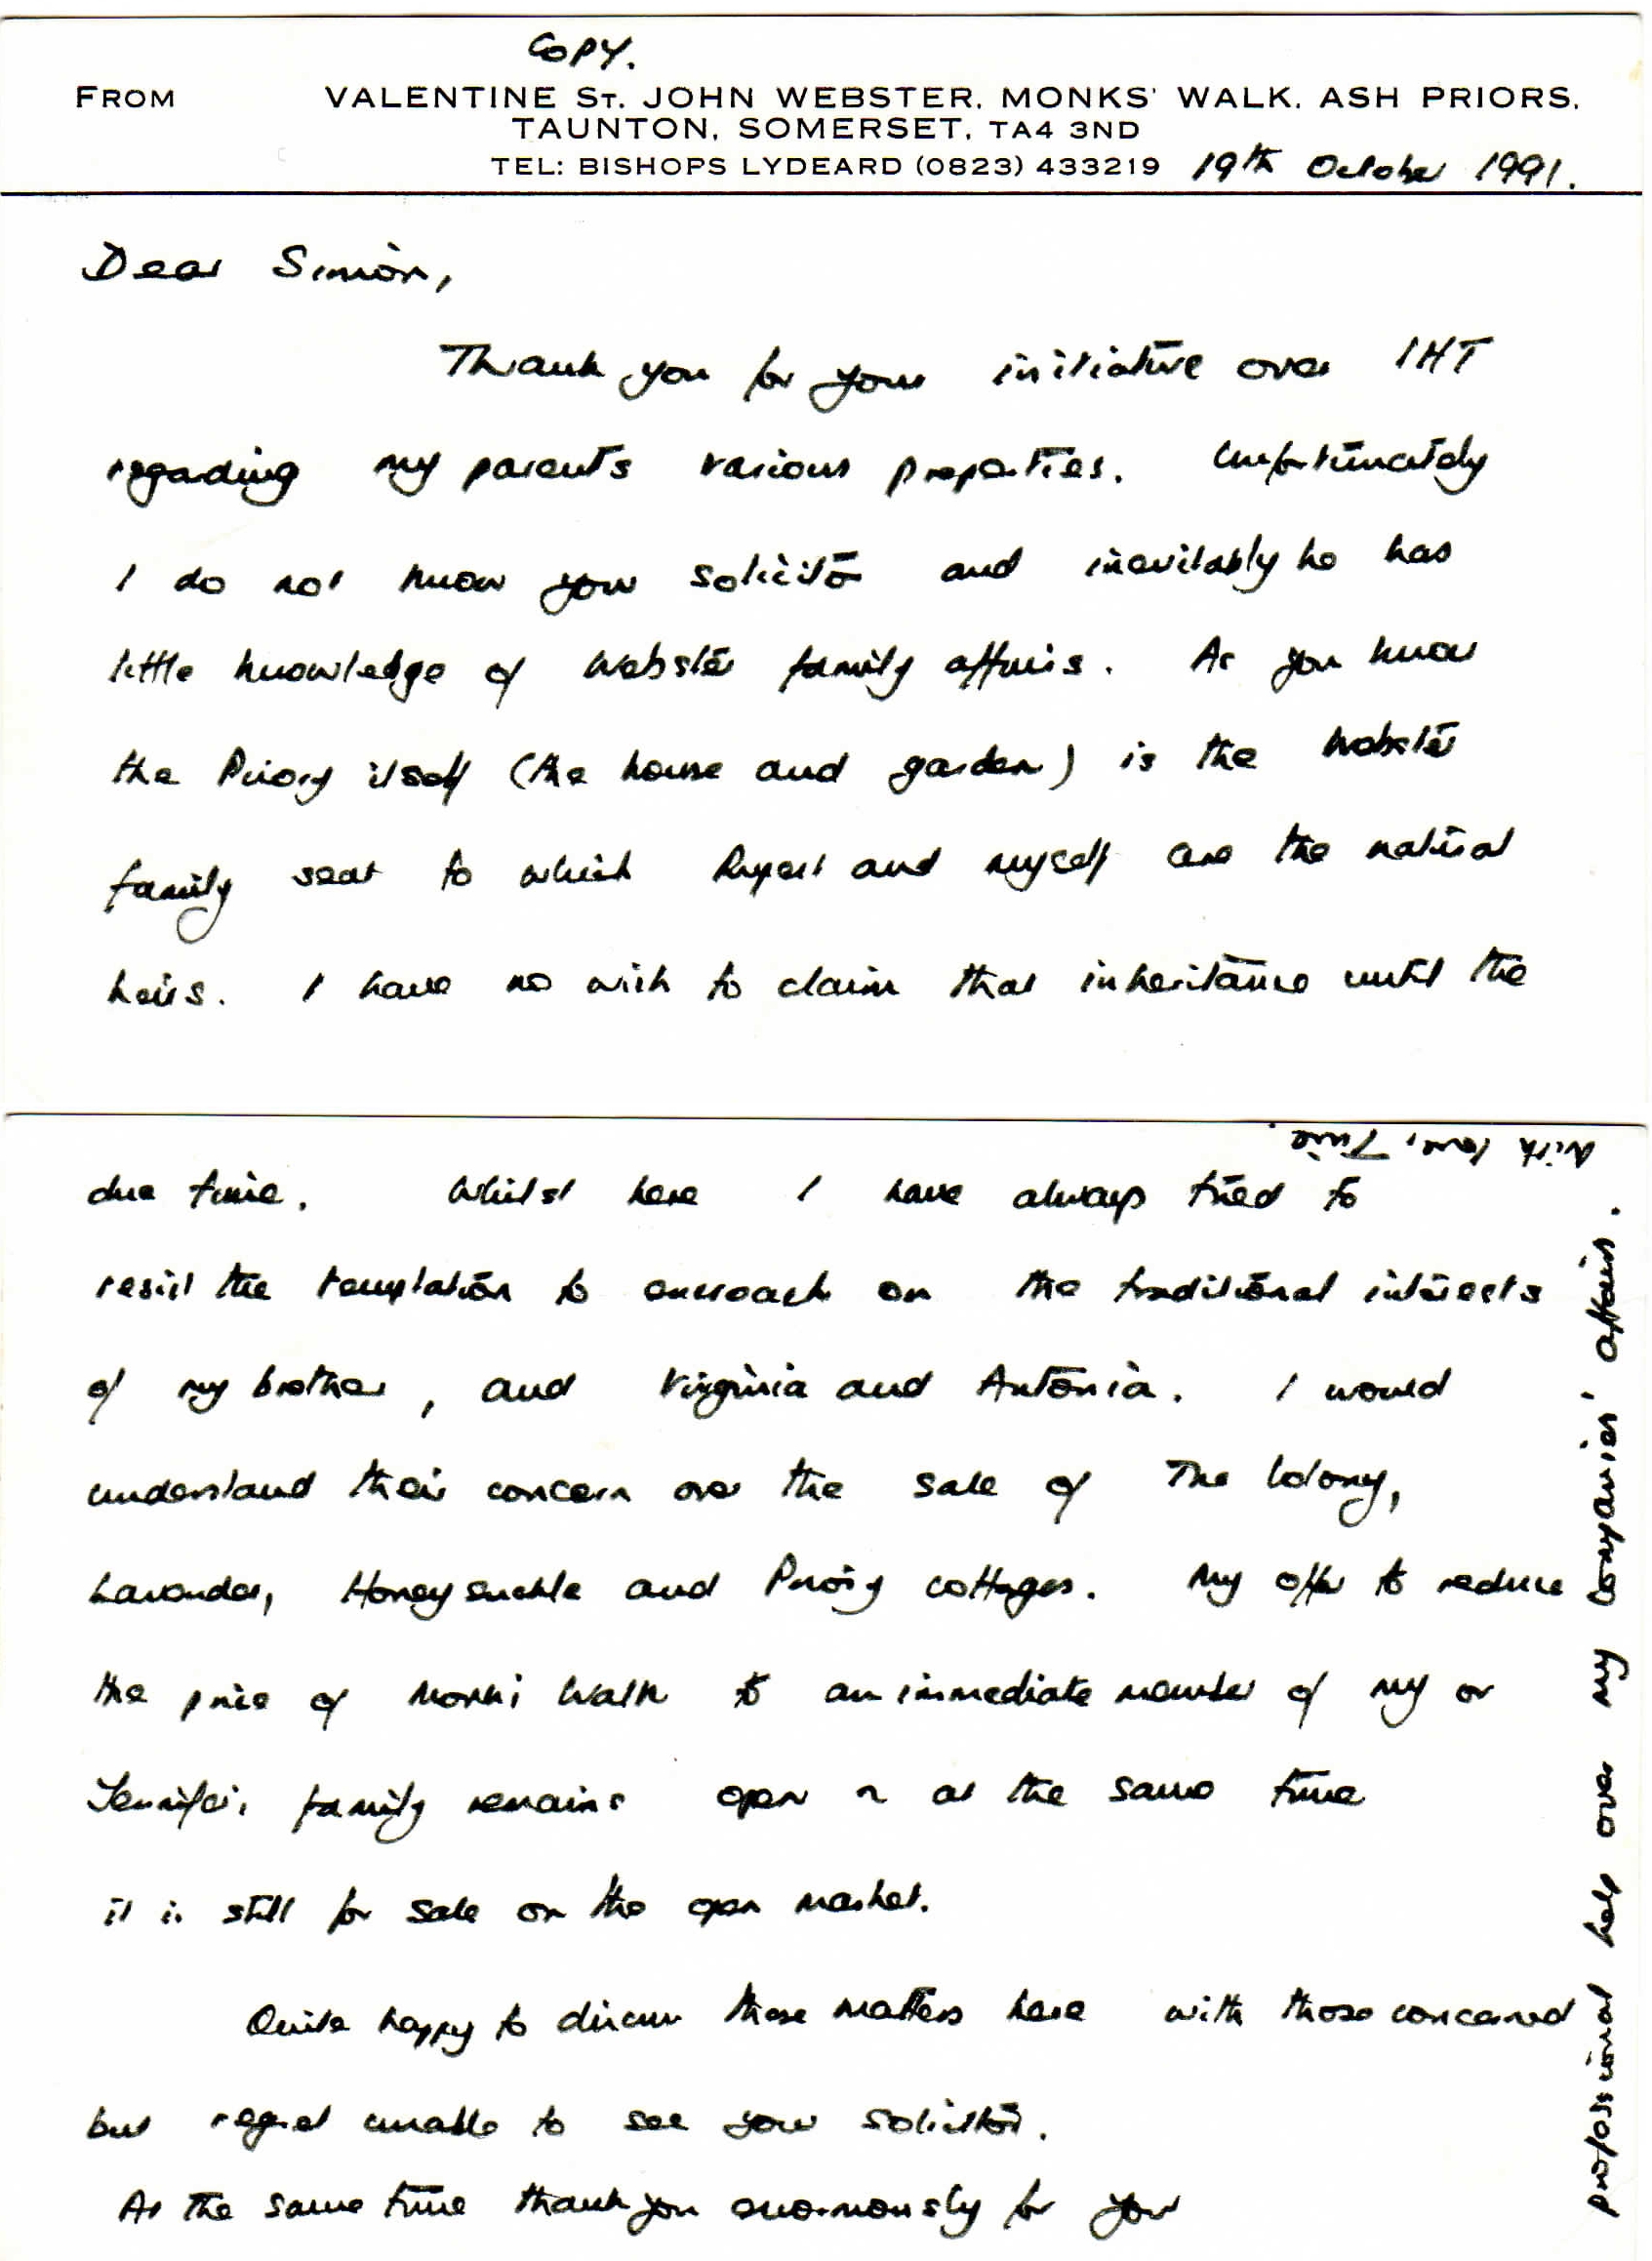 COPY.
FROM VALENTINE ST. JOHN WEBSTER, MONKS' WALK, ASH PRIORS,
TAUNTON, SOMERSET, TA4 3ND
TEL: BISHOPS LYDEARD (0823) 433219 19th October 1991.
Dear Simon,
Thank you for your initiative over IHT
regarding my parents various properties. Unfortunately
I do not know your solicitor and inevitably he has
little knowledge of Webster family affairs. As you know
the Priory itself (the house and garden) is the Webster
family seat to which Rupert and myself are the natural
heirs. I have no wish to claim that inheritance until the
due time. Whilst here I have always tried to
resist the temptation to encroach on the traditional interests
of my brother, and Virginia and Antonia. I would
understand their concern over the sale of The Colony,
Lavender, Honeysuckle and Priory cottages. My offer to reduce
the price of Monks Walk to an immediate member of my or
Jennifer's family remains open ~ at the same time
it is still for sale on the open market.
Quite happy to discuss these matters here with those concerned
but regret unable to see your solicitor.
At the same time thank you enormously for your
professional help over my companies' affairs.
With love,